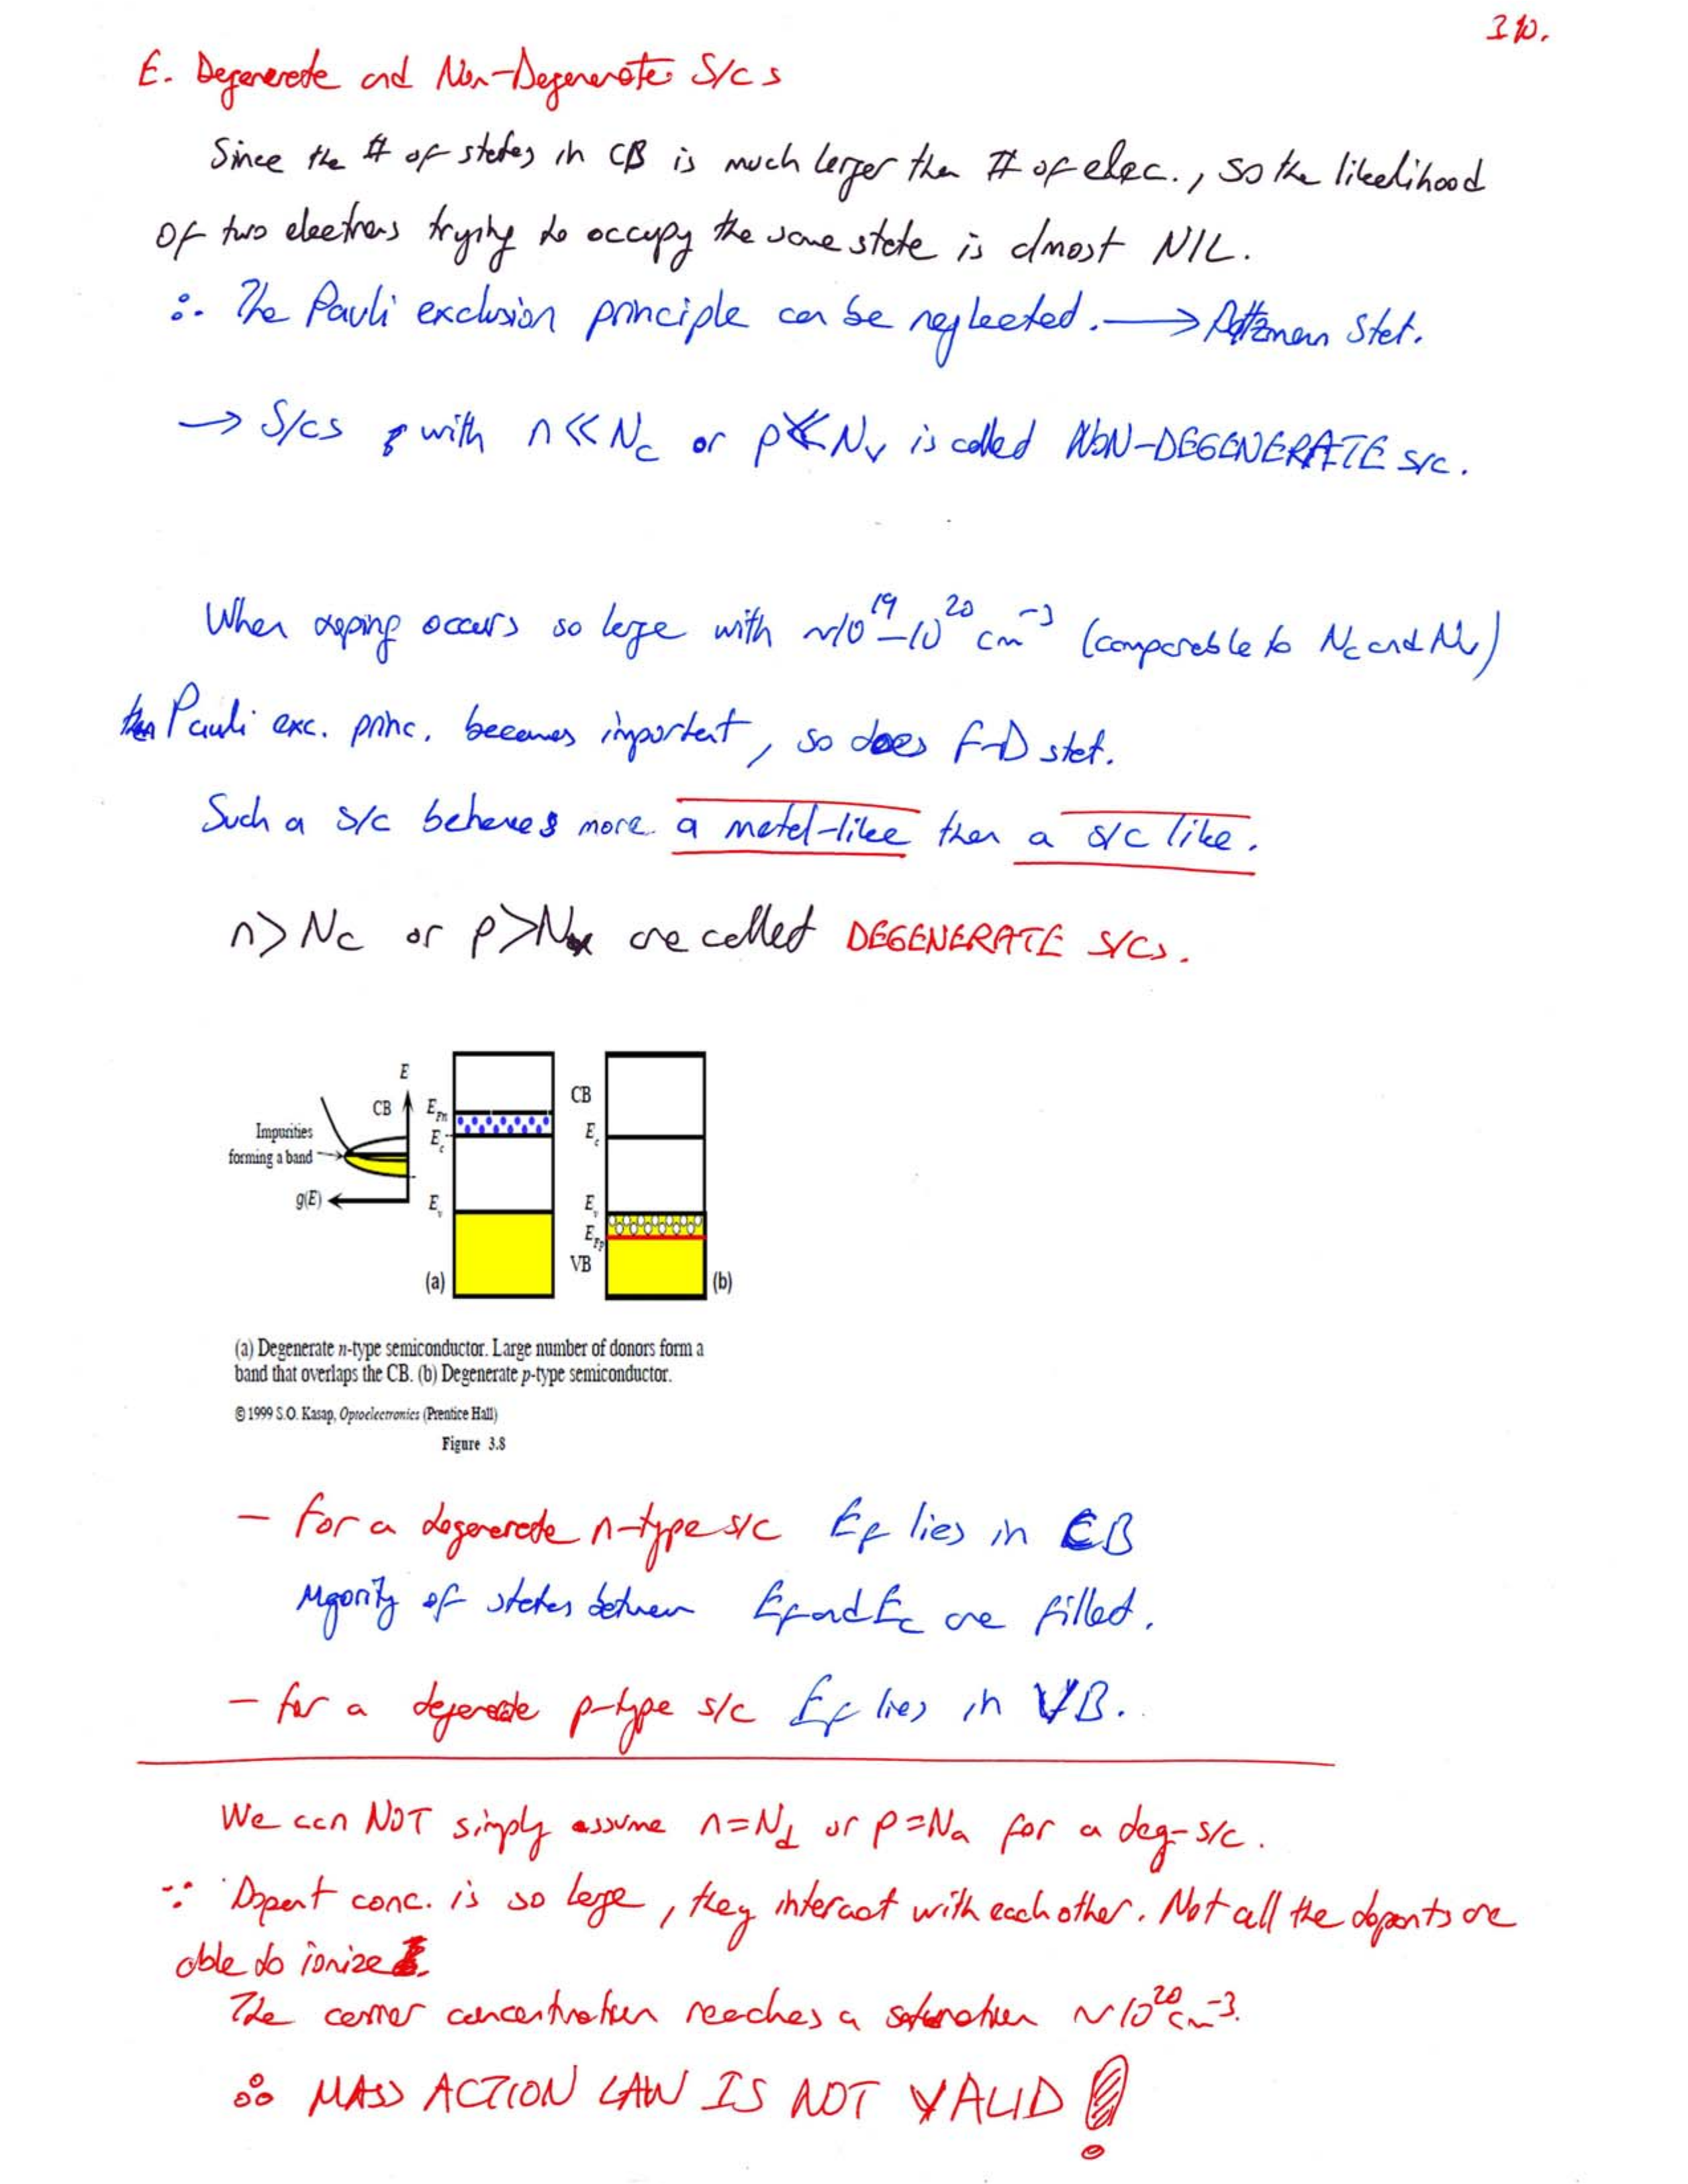 3 10.
E. Degenerate and Non-Degenerate S/Cs
Since the # of states in CB is much larger than # of elec., so the likelihood
of two electrons trying to occupy the same state is almost NIL.
∴ The Pauli exclusion principle can be neglected. → Boltzmann Stat.
→ S/Cs with n ≪ Nc or p ≪ Nv is called NON-DEGENERATE S/C.
When doping occurs so large with ~10^19–10^20 cm^-3 (comparable to Nc and Nv)
then Pauli exc. princ. becomes important, so does F-D stat.
Such a s/c behaves more a metal-like than a s/c like.
n > Nc or p > Nv are called DEGENERATE S/Cs.
E
CB
E_Fn
E_c
Impurities
forming a band
g(E)
E_v
(a)
CB
E_c
E_v
E_Fp
VB
(b)
(a) Degenerate n-type semiconductor. Large number of donors form a
band that overlaps the CB. (b) Degenerate p-type semiconductor.
© 1999 S.O. Kasap, Optoelectronics (Prentice Hall)
Figure 3.8
— For a degenerate n-type s/c E_F lies in CB
Majority of states between E_F and E_c are filled.
— for a degenerate p-type s/c E_F lies in VB.
We can NOT simply assume n=N_d or p=N_a for a deg-s/c.
∵ Dopant conc. is so large, they interact with each other. Not all the dopants are
able to ionize.
The carrier concentration reaches a saturation ~10^20 cm^-3.
∴ MASS ACTION LAW IS NOT VALID!